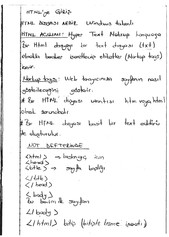 HTML'ye Giriş
HTML DOSYASI NEDİR Windows tabanlı
HTML AÇILIMI: Hyper Text Markup Language
Bir Html dosyası bir text dosyası (txt)
olmakla beraber işaretleyici etiketler (Markup tags)
içerir.
Markup tags: Web tarayıcısına sayfanın nasıl
gösterileceğini gösterir.
# Bir HTML dosyası uzantısı htm veya html
olmak zorundadır.
# Bir HTML dosyası basit bir text editörü
ile oluşturulur.
NOT DEFTERİNDE
<html> → başlangıç için
<head>
<title> → sayfa başlığı
</title>
</head>
<body>
bu benim ilk sayfam
</body>
</html> bitiş